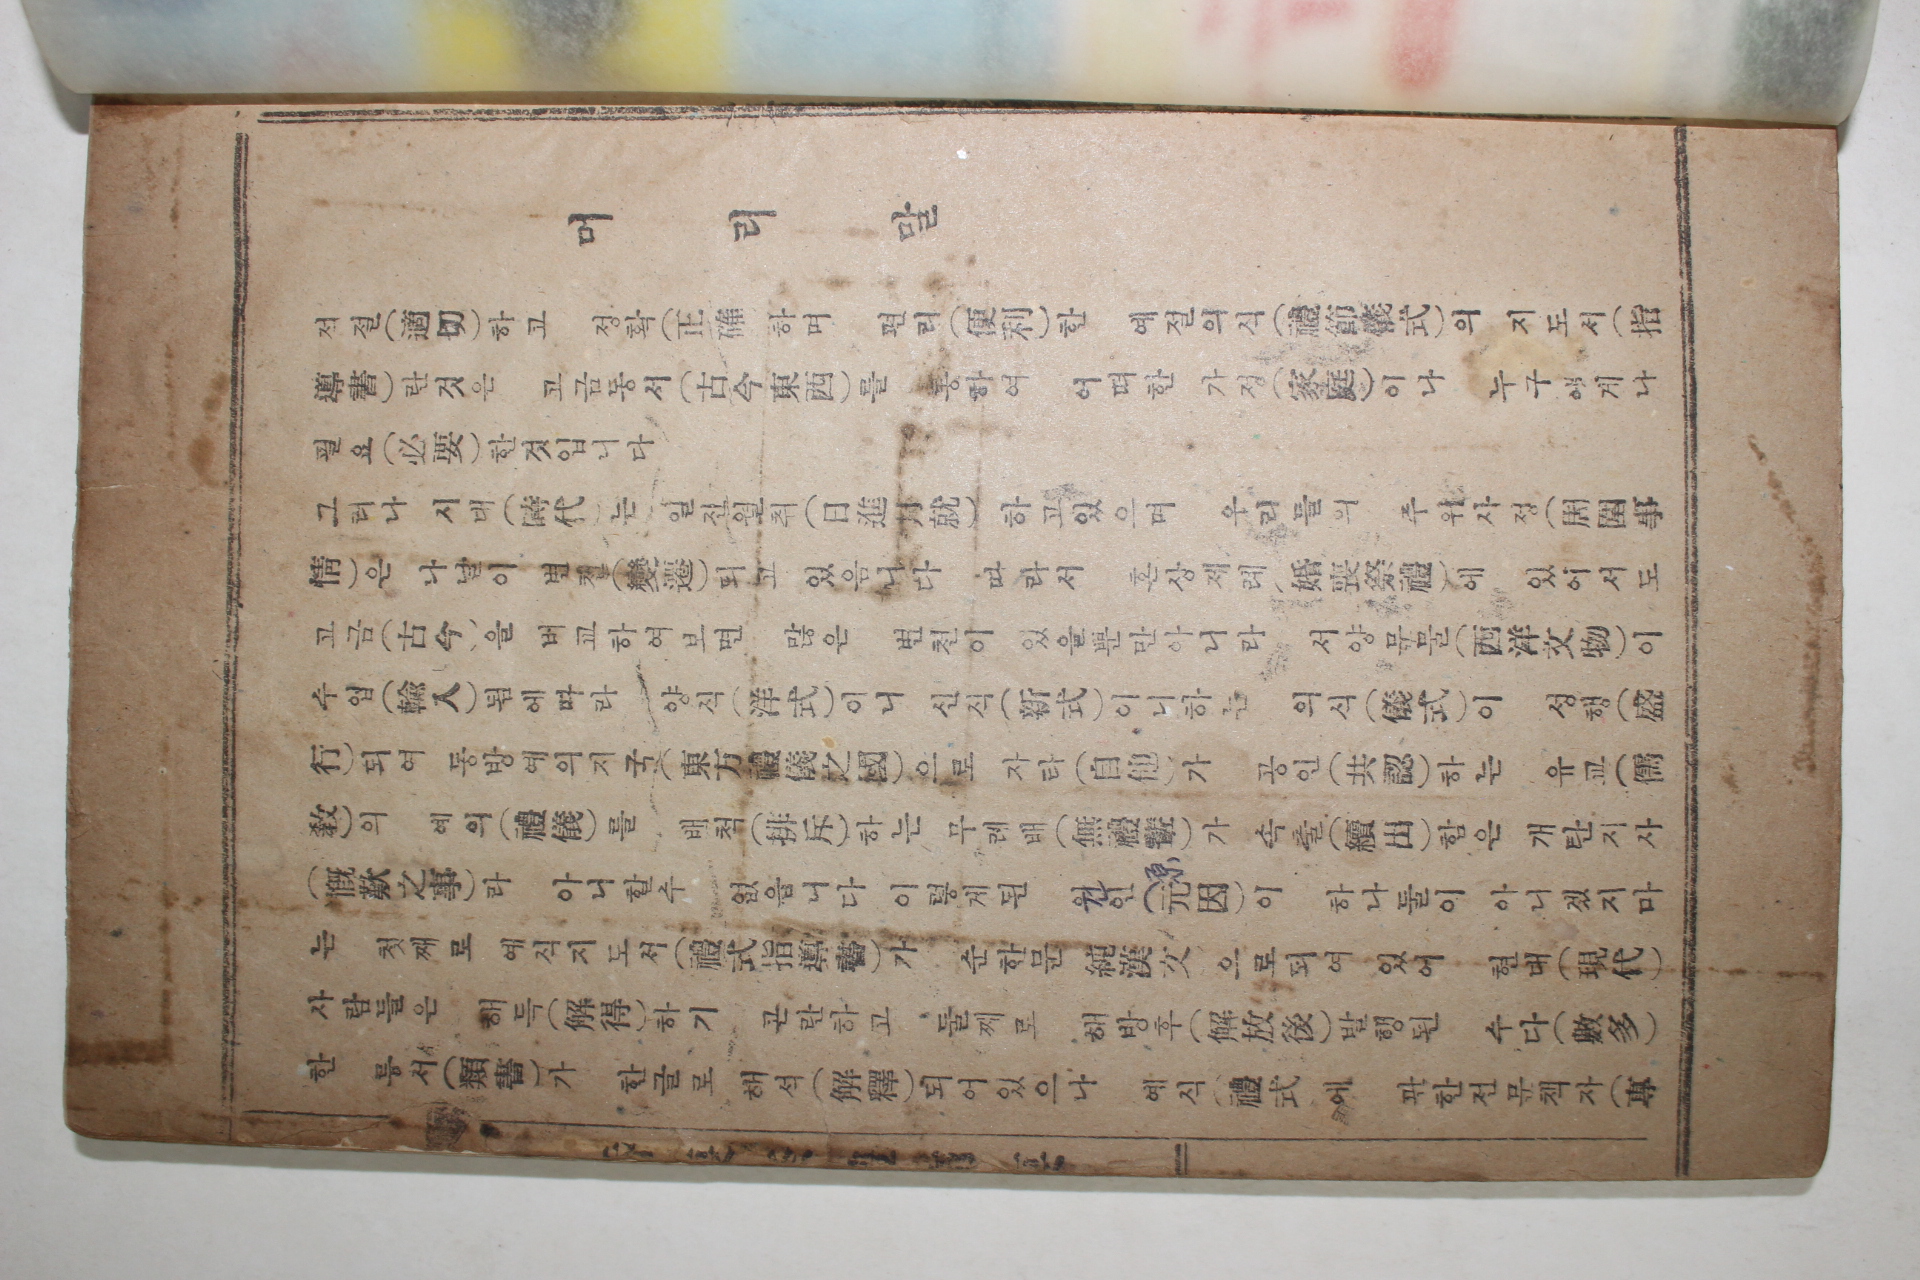 머리말
적절(適切)하고 정확(正確 하며 편리(便利)한 예절의식(禮節儀式)의 지도서(指
導書)란것은 고금동서(古今東西)를 통하여 어떠한 가정(家庭)이나 누구에게나
필요(必要)한것입니다
그러나 시대(時代)는 일진월취(日進月就) 하고있으며 우리들의 주위사정(周圍事
情)은 나날이 변천(變遷)되고 있읍니다 따라서 혼상제례(婚喪祭禮)에 있어서도
고금(古今)을 버교하여보면 많은 변천이 있을뿐만아니라 서양문물(西洋文物)이
수입(輸入)됨에따라 양식(洋式)이니 신식(新式)이니하는 의식(儀式)이 성행(盛
行)되여 동방예의지국(東方禮儀之國)으로 자타(自他)가 공인(共認)하는 유교(儒
敎)의 예의(禮儀)를 배척(排斥)하는 무례배(無禮輩)가 속출(續出)함은 개탄지사
(慨歎之事)라 아니할수 없읍니다 이렇게된 원인(元因)이 하나둘이 아니겠지마
原
는 첫째로 예식지도서(禮式指導書)가 순한문 純漢文 으로되여 있어 현대(現代)
사람들은 해득(解得)하기 곤란하고 둘째로 해방후(解放後)발행된 수다(數多)
한 류서(類書)가 한글로 해석(解釋)되어있으나 예식(禮式 에 관한전문책자(專